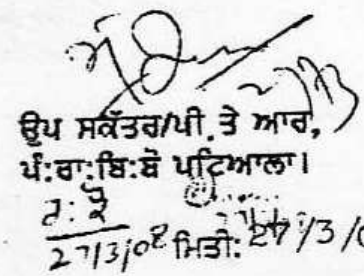 ਉਪ ਸਕੱਤਰ/ਪੀ.ਤੇ ਆਰ,
ਪੰ:ਰਾ:ਬਿ:ਬੋ ਪਟਿਆਲਾ।
27/3/08 ਮਿਤੀ: 27/3/0